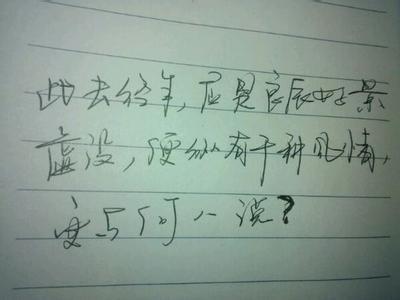 此去经年,应是良辰好景
虚设,便纵有千种风情,
更与何人说?